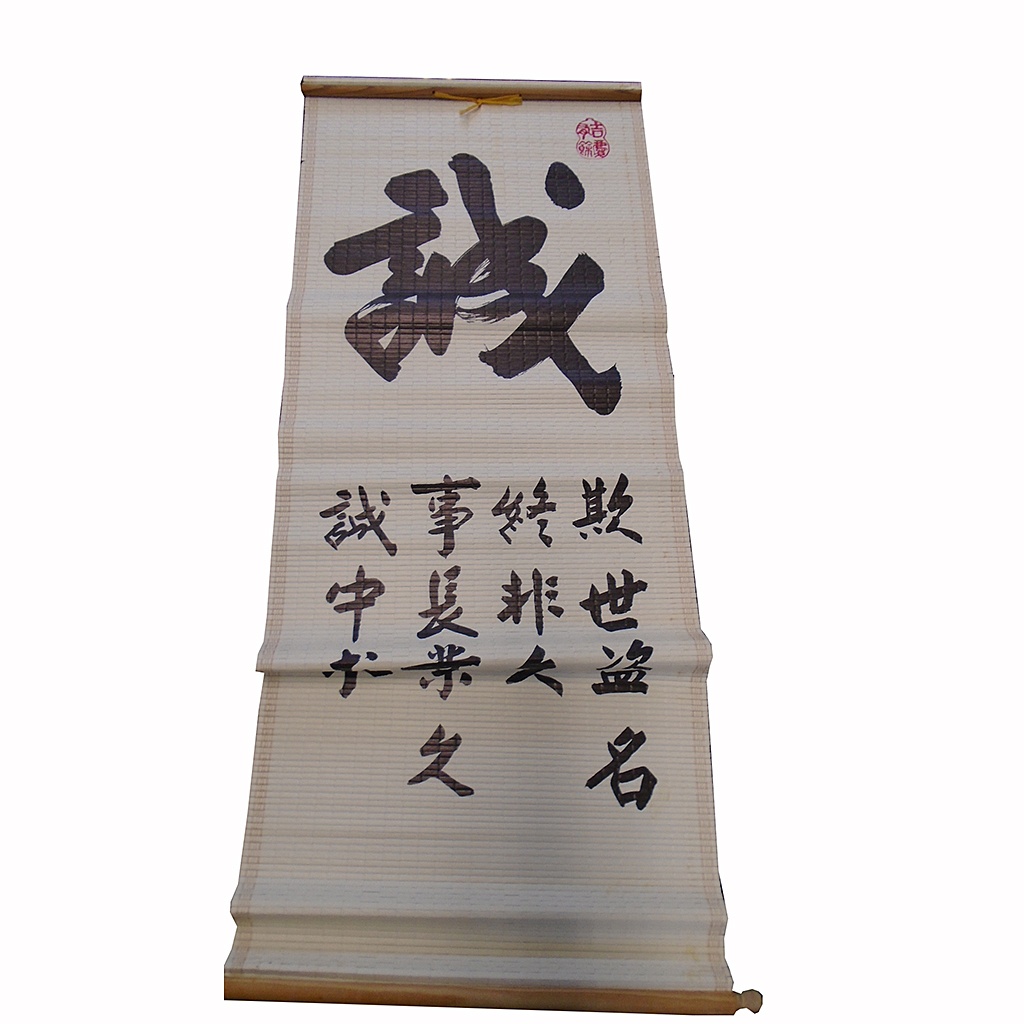 誠
欺世盜名
終非久
事長業久
誠中求